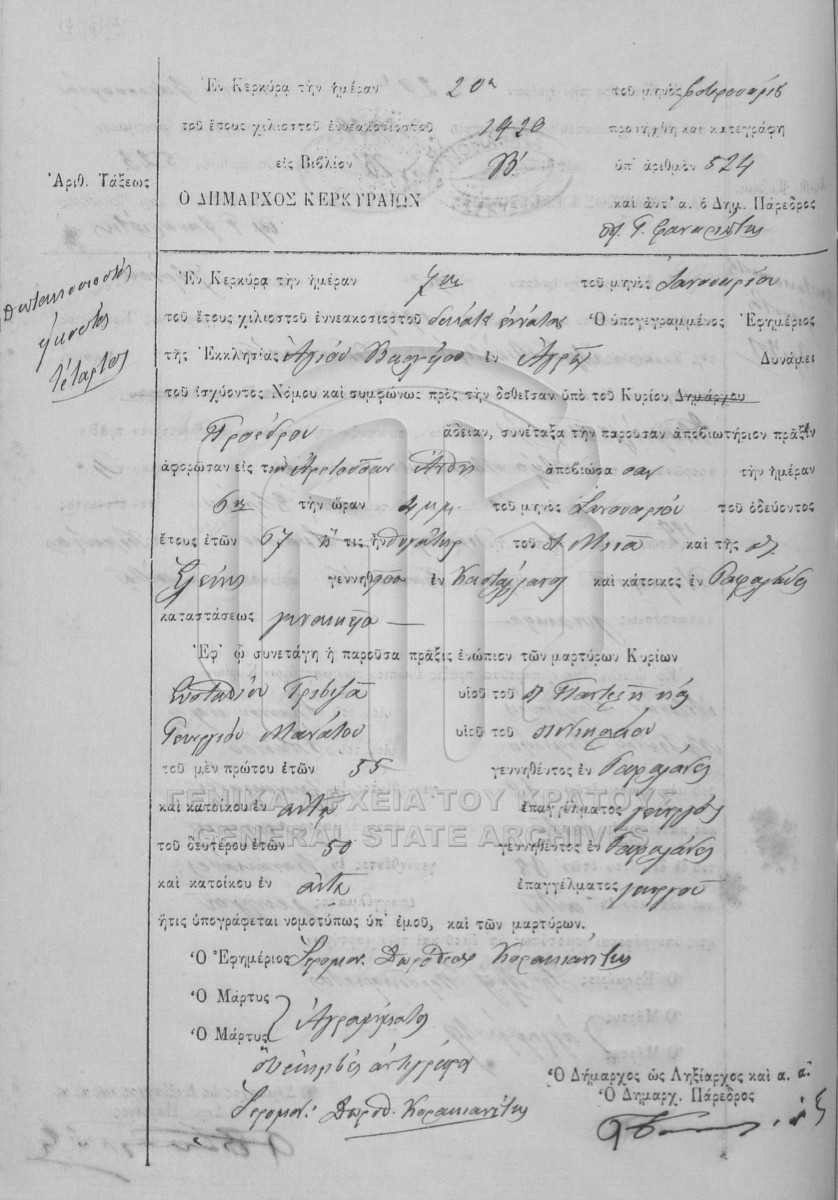 Ἐν Κερκύρᾳ τὴν ἡμέραν 20ῃ τοῦ μηνὸς Φεβρουαρίου
τοῦ ἔτους χιλιοστοῦ ἐννεακοσιοστοῦ 1920 προσήχθη καὶ κατεγράφη
εἰς Βιβλίον Β' ὑπ' ἀριθμὸν 524
Ἀριθ. Τάξεως
Ὁ ΔΗΜΑΡΧΟΣ ΚΕΡΚΥΡΑΙΩΝ καὶ ἀντ' α. ὁ Δημ. Πάρεδρος
πεντακοσιοστὸς
εἰκοστὸς
τέταρτος
Ἐν Κερκύρᾳ τὴν ἡμέραν 7ην τοῦ μηνὸς Ἰανουαρίου
τοῦ ἔτους χιλιοστοῦ ἐννεακοσιοστοῦ δεκάτου ἐννάτου Ὁ ὑπογεγραμμένος Ἐφημέριος
τῆς Ἐκκλησίας Ἁγίου ἐν Δυνάμει
τοῦ ἰσχύοντος Νόμου καὶ συμφώνως πρὸς τὴν δοθεῖσαν ὑπὸ τοῦ Κυρίου Δημάρχου
Προέδρου ἄδειαν, συνέταξα τὴν παροῦσαν ἀποβιωτήριον πρᾶξιν
ἀφορῶσαν εἰς τὴν ἀποβιώσασαν τὴν ἡμέραν
6ην τὴν ὥραν 4 μ.μ. τοῦ μηνὸς Ἰανουαρίου τοῦ ὁδεύοντος
ἔτους ἐτῶν 67 ἥτις ἦν θυγάτηρ τοῦ καὶ τῆς
Ἑλένης γεννηθεῖσα ἐν Καστελλάνοι καὶ κάτοικος ἐν Ραφαλάδες
καταστάσεως
Ἐφ' ᾧ συνετάγη ἡ παροῦσα πρᾶξις ἐνώπιον τῶν μαρτύρων Κυρίων
Εὐσταθίου υἱοῦ τοῦ
Γεωργίου Μανάτου υἱοῦ τοῦ π Νικολάου
τοῦ μὲν πρώτου ἐτῶν 55 γεννηθέντος ἐν Ραφαλάδες
καὶ κατοίκου ἐν αὐτῇ ἐπαγγέλματος γεωργὸς
ΓΕΝΙΚΑ ΑΡΧΕΙΑ ΤΟΥ ΚΡΑΤΟΥΣ
GENERAL STATE ARCHIVES
τοῦ δευτέρου ἐτῶν 50 γεννηθέντος ἐν Ραφαλάδες
καὶ κατοίκου ἐν αὐτῇ ἐπαγγέλματος γεωργοῦ
ἥτις ὑπογράφεται νομοτύπως ὑπ' ἐμοῦ, καὶ τῶν μαρτύρων.
Ὁ Ἐφημέριος Ἱερομον. Δωρόθεος Κορακιανίτης
Ὁ Μάρτυς
Ὁ Μάρτυς Ἀγράμματος
Ἱερομον: Δωρόθ. Κορακιανίτης
Ὁ Δήμαρχος ὡς Ληξίαρχος καὶ α. α
Ὁ Δημαρχ. Πάρεδρος